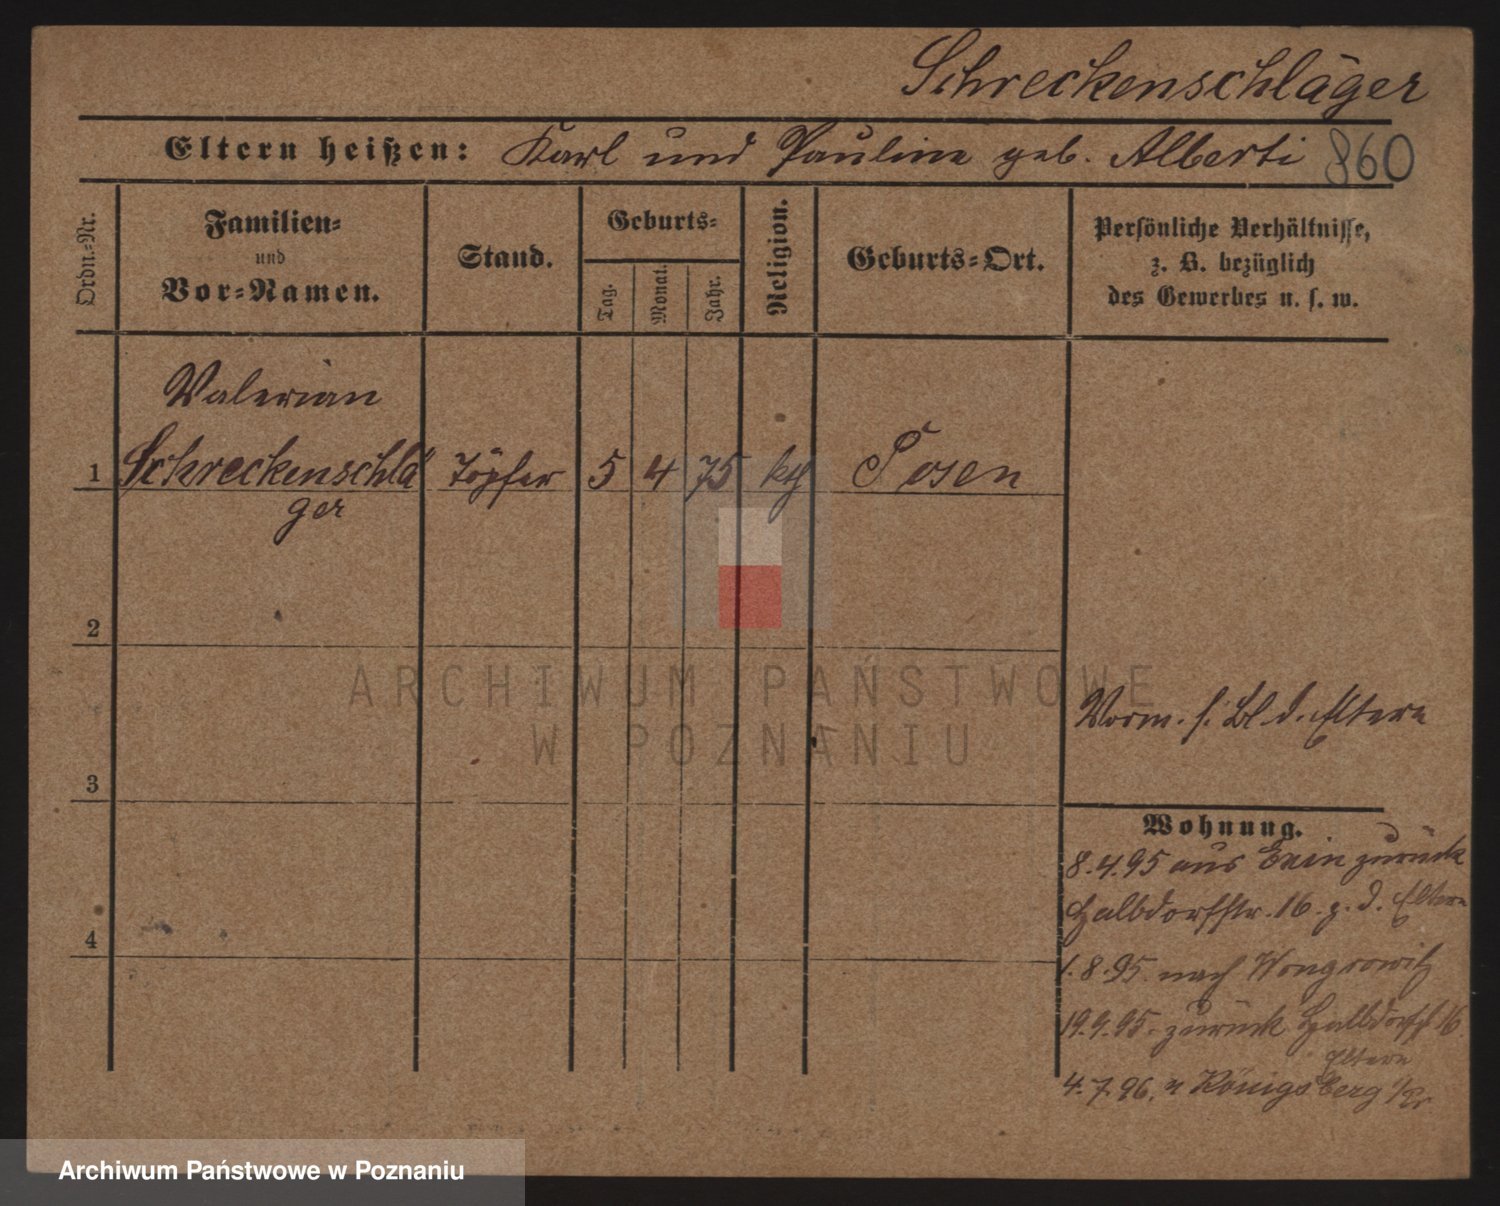 Schreckenschläger
Eltern heißen: Karl und Pauline geb. Alberti 860
Ordn.-Nr.
Familien-
und
Vor-Namen.
Stand.
Geburts-
Tag.
Monat.
Jahr.
Religion.
Geburts-Ort.
Persönliche Verhältnisse,
z. B. bezüglich
des Gewerbes u. s. w.
Valerian
1 Schreckenschlä Töpfer 5 4 75 kth Posen
ger
2
3
4
ARCHIWUM PAŃSTWOWE
W POZNANIU
Vorm. s. Bl. d. Eltern
Wohnung.
8.4.95 aus Exin zurück
Halbdorfstr. 16. z. d. Eltern
1.8.95. nach Wongrowitz
19.9.95. zurück Halbdorfst 16.
Eltern
4.7.96. n Königsberg i/Pr.
Archiwum Państwowe w Poznaniu